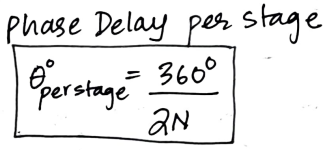 Phase Delay per stage
θ°per stage = 360°
2N